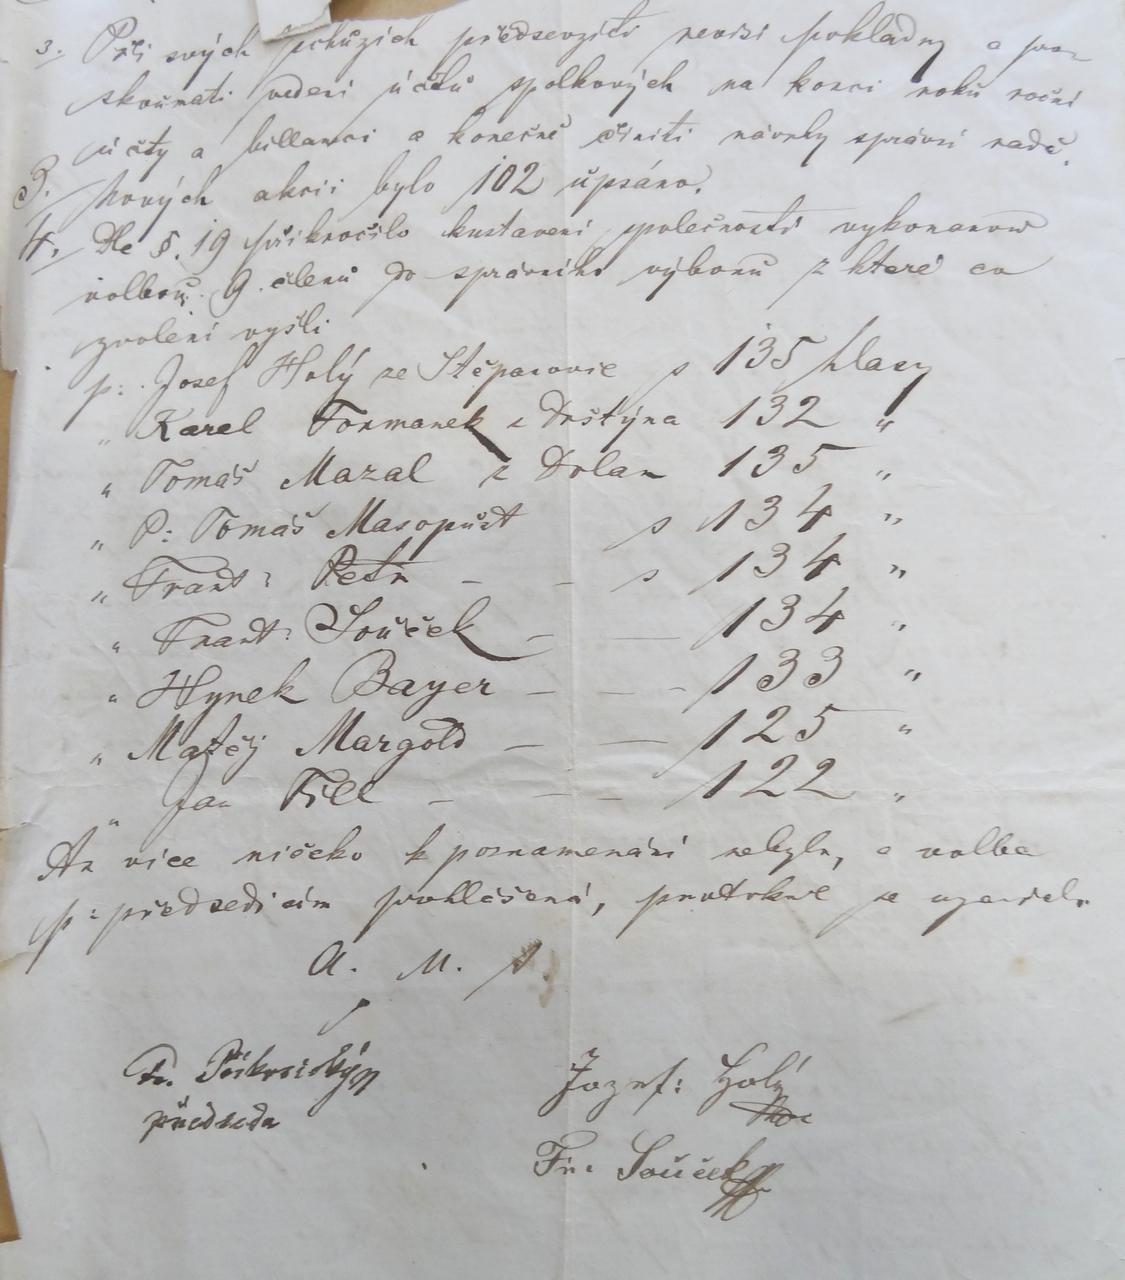 3. Při svých schůzích předsevzíti revisi pokladny a pro-
skoumati vedení účtů spolkových na konci roku roční
účty a billanci a konečně činiti návrhy správní radě.
3. Nových akcií bylo 102 upsáno.
4. Dle §. 19 přikročilo kustavení společnosti vykonanou
volbou 9 členů do správního výboru z které co
zvolení vyšli
p: Josef Holý ze Štěpanovic s 135 hlasy
„ Karel Formanek z Drštýna 132 „
„ Tomáš Mazal z Dolan 135 „
„ P: Tomáš Masopust s 134 „
„ Frant: Petr – – s 134 „
„ Frant: Souček – — 134 „
„ Hynek Bayer – – – 133 „
„ Matěj Margold – — 125 „
„ Jan Fill – – – 122 „
An více ničeho k poznamenání nebylo, a volba
p: předsedícím prohlášená, protokol se uzavřel.
A. M. S.
Fr.
předseda
Jozef: Holý
Fr. Souček